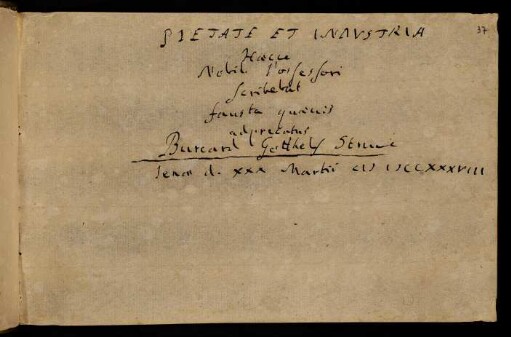 PIETATE ET INDVSTRIA
37
Haecce
Nobil. Possessori
scribebat
fausta quaevis
adprecatus
Burcard Gotthelf Struve
Jenae d. XXX Martii CIƆ IƆCCXXXVIII